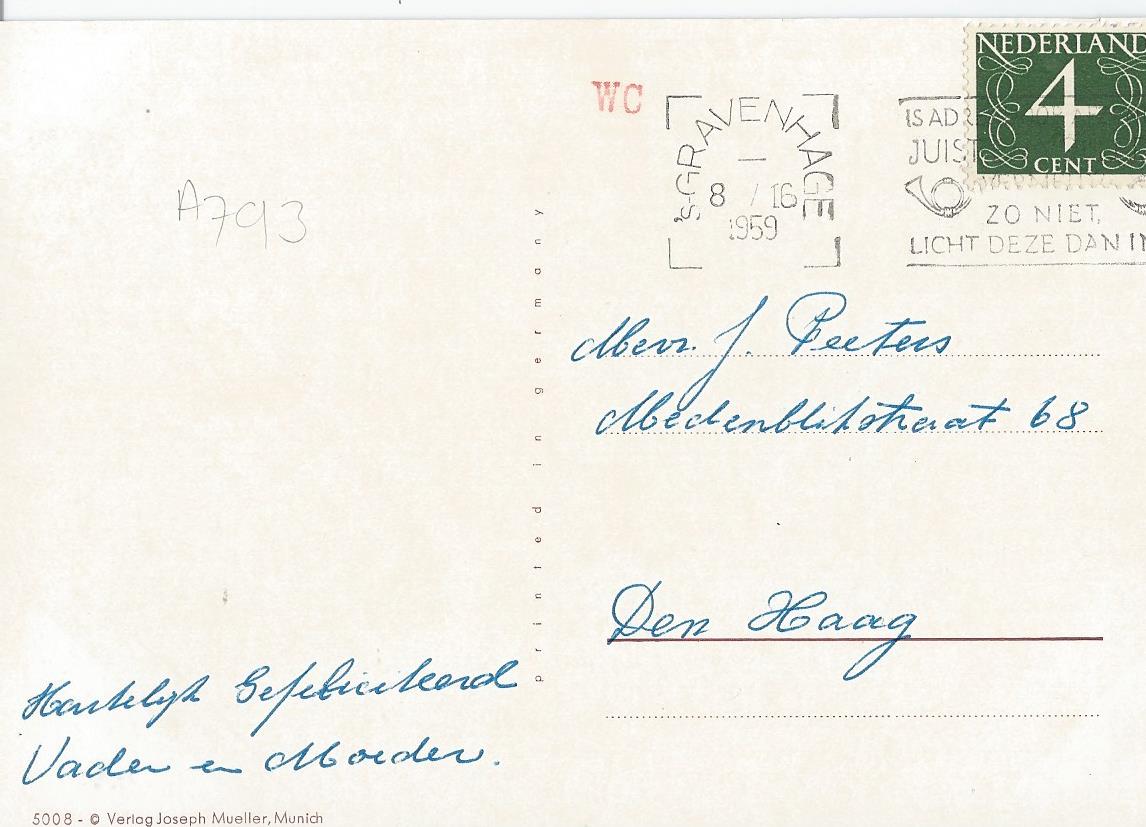 WC
NEDERLAND
4
CENT
's-GRAVENHAGE
8 / 16
1959
IS ADR
JUIST
ZO NIET,
LICHT DEZE DAN IN
A793
printed in germany
Mevr. J. Peeters
Medenblikstraat 68
Den Haag
Hartelijk Gefeliciteerd
Vader en Moeder.
5008 - © Verlag Joseph Mueller, Munich